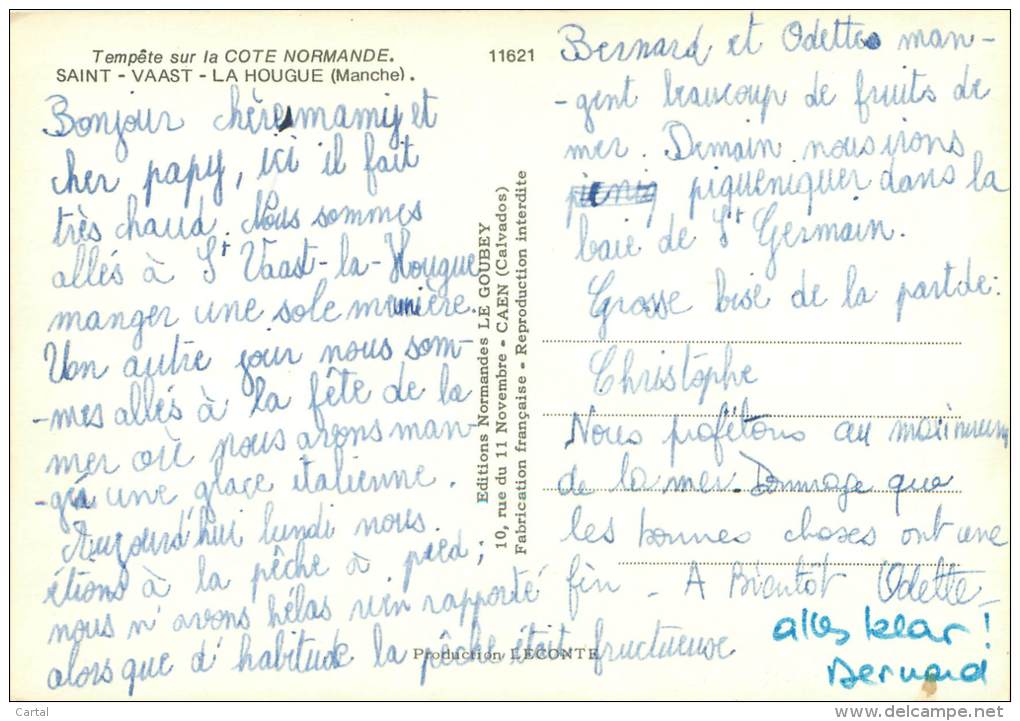 Tempête sur la COTE NORMANDE.
SAINT - VAAST - LA HOUGUE (Manche).
11621
Bonjour chère mamiy et
cher papy, ici il fait
très chaud. Nous sommes
allés à St Vaast-la-Hougue
manger une sole meunière.
Un autre jour nous som-
-mes allés à la fête de la
mer où nous avons man-
-gé une glace italienne.
Aujourd'hui lundi nous
étions à la pêche à pied,
nous n'avons hélas rien rapporté
alors que d'habitude la pêche était fructueuse
Editions Normandes LE GOUBEY
10, rue du 11 Novembre - CAEN (Calvados)
Fabrication française - Reproduction interdite
Production LECONTE
Bernard et Odette man-
-gent beaucoup de fruits de
mer. Demain nous irons
piqueniquer dans la
baie de St Germain.
Grosse bise de la part de:
Christophe
Nous profitons au maximum
de la mer. Dommage que
les bonnes choses ont une
fin - A Bientôt Odette -
alles klar!
Bernard
Cartal
delcampe.net